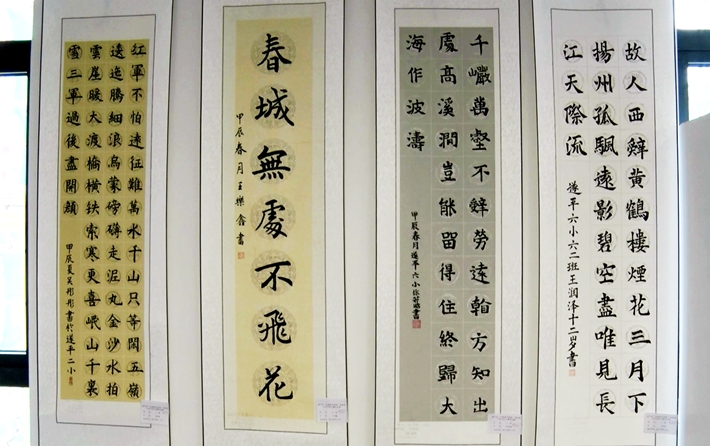 红軍不怕遠征難萬水千山只等閑五嶺
逶迤騰細浪烏蒙磅礴走泥丸金沙水拍
雲崖暖大渡橋橫铁索寒更喜岷山千裏
雪三軍過後盡開顔
甲辰夏吴彬書於遂平二小
春城無處不飛花
甲辰春月王樂鑫書
千巖萬壑不辤勞遠看方知出
處高溪澗豈能留得住終歸大
海作波濤
甲辰春月遂平六小徐書
故人西辤黄鶴樓煙花三月下
揚州孤颿遠影碧空盡唯見長
江天際流
遂平六小六二班王润泽十二岁書